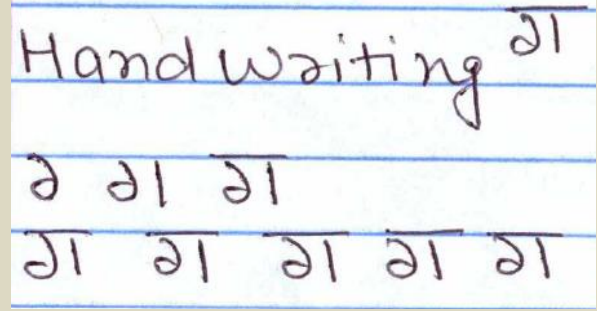 Hand Writing ग
 ग
ग ग ग ग ग